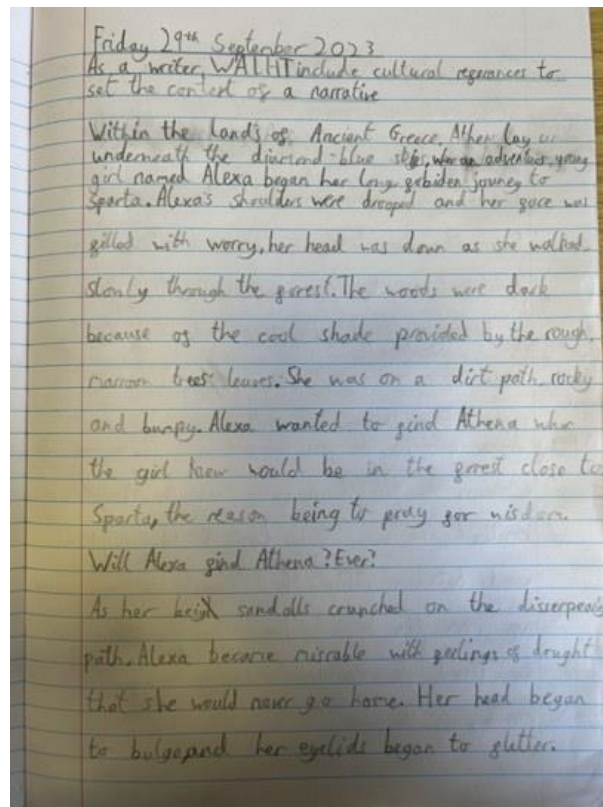 Friday 29th September 2023
As a writer, WALHT include cultural referances to
set the context of a narrative
Within the lands of Ancient Greece, Athen lay
underneath the diamond-blue skies, an adventurus young
girl named Alexa began her long forbiden jouney to
Sparta. Alexa's shoulders were drooped and her face was
filled with worry, her head was down as she walked
slowly through the forrest. The woods were dark
because of the cool shade provided by the rough,
maroon trees' leaves. She was on a dirt path, rocky
and bumpy. Alexa wanted to find Athena who
the girl knew would be in the forrest close to
Sparta, the reason being to pray for wisdom.
Will Alexa find Athena? Ever?
As her sandalls crunched on the
path, Alexa became misrable with feelings of drught
that she would never go home. Her head began
to bulge, and her eyelids began to flutter.